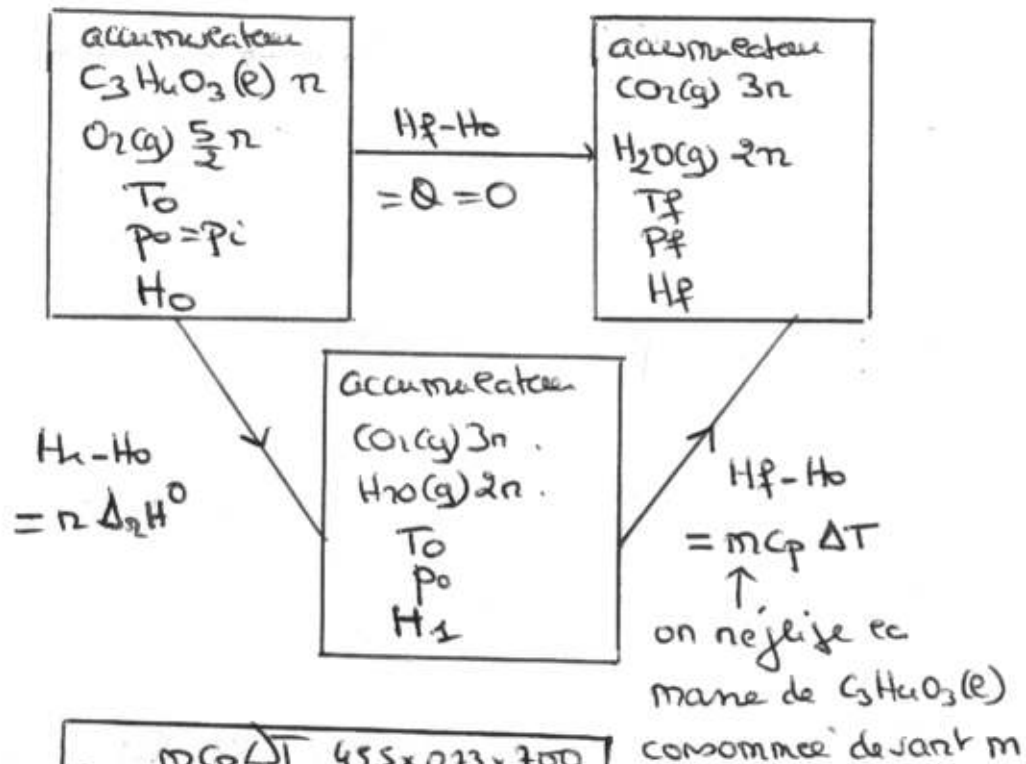 accumulateur
C3H4O3(l) n
O2(g) 5/2 n
T0
p0=pi
H0
Hf-H0
=Q=0
accumulateur
CO2(g) 3n
H2O(g) 2n
Tf
Pf
Hf
H1-H0
= n ΔrH°
accumulateur
CO2(g) 3n.
H2O(g) 2n.
T0
p0
H1
Hf-H0
= mcp ΔT
↑
on néglige la
masse de C3H4O3(l)
consommée devant m
mcpΔT 455x0,23x700